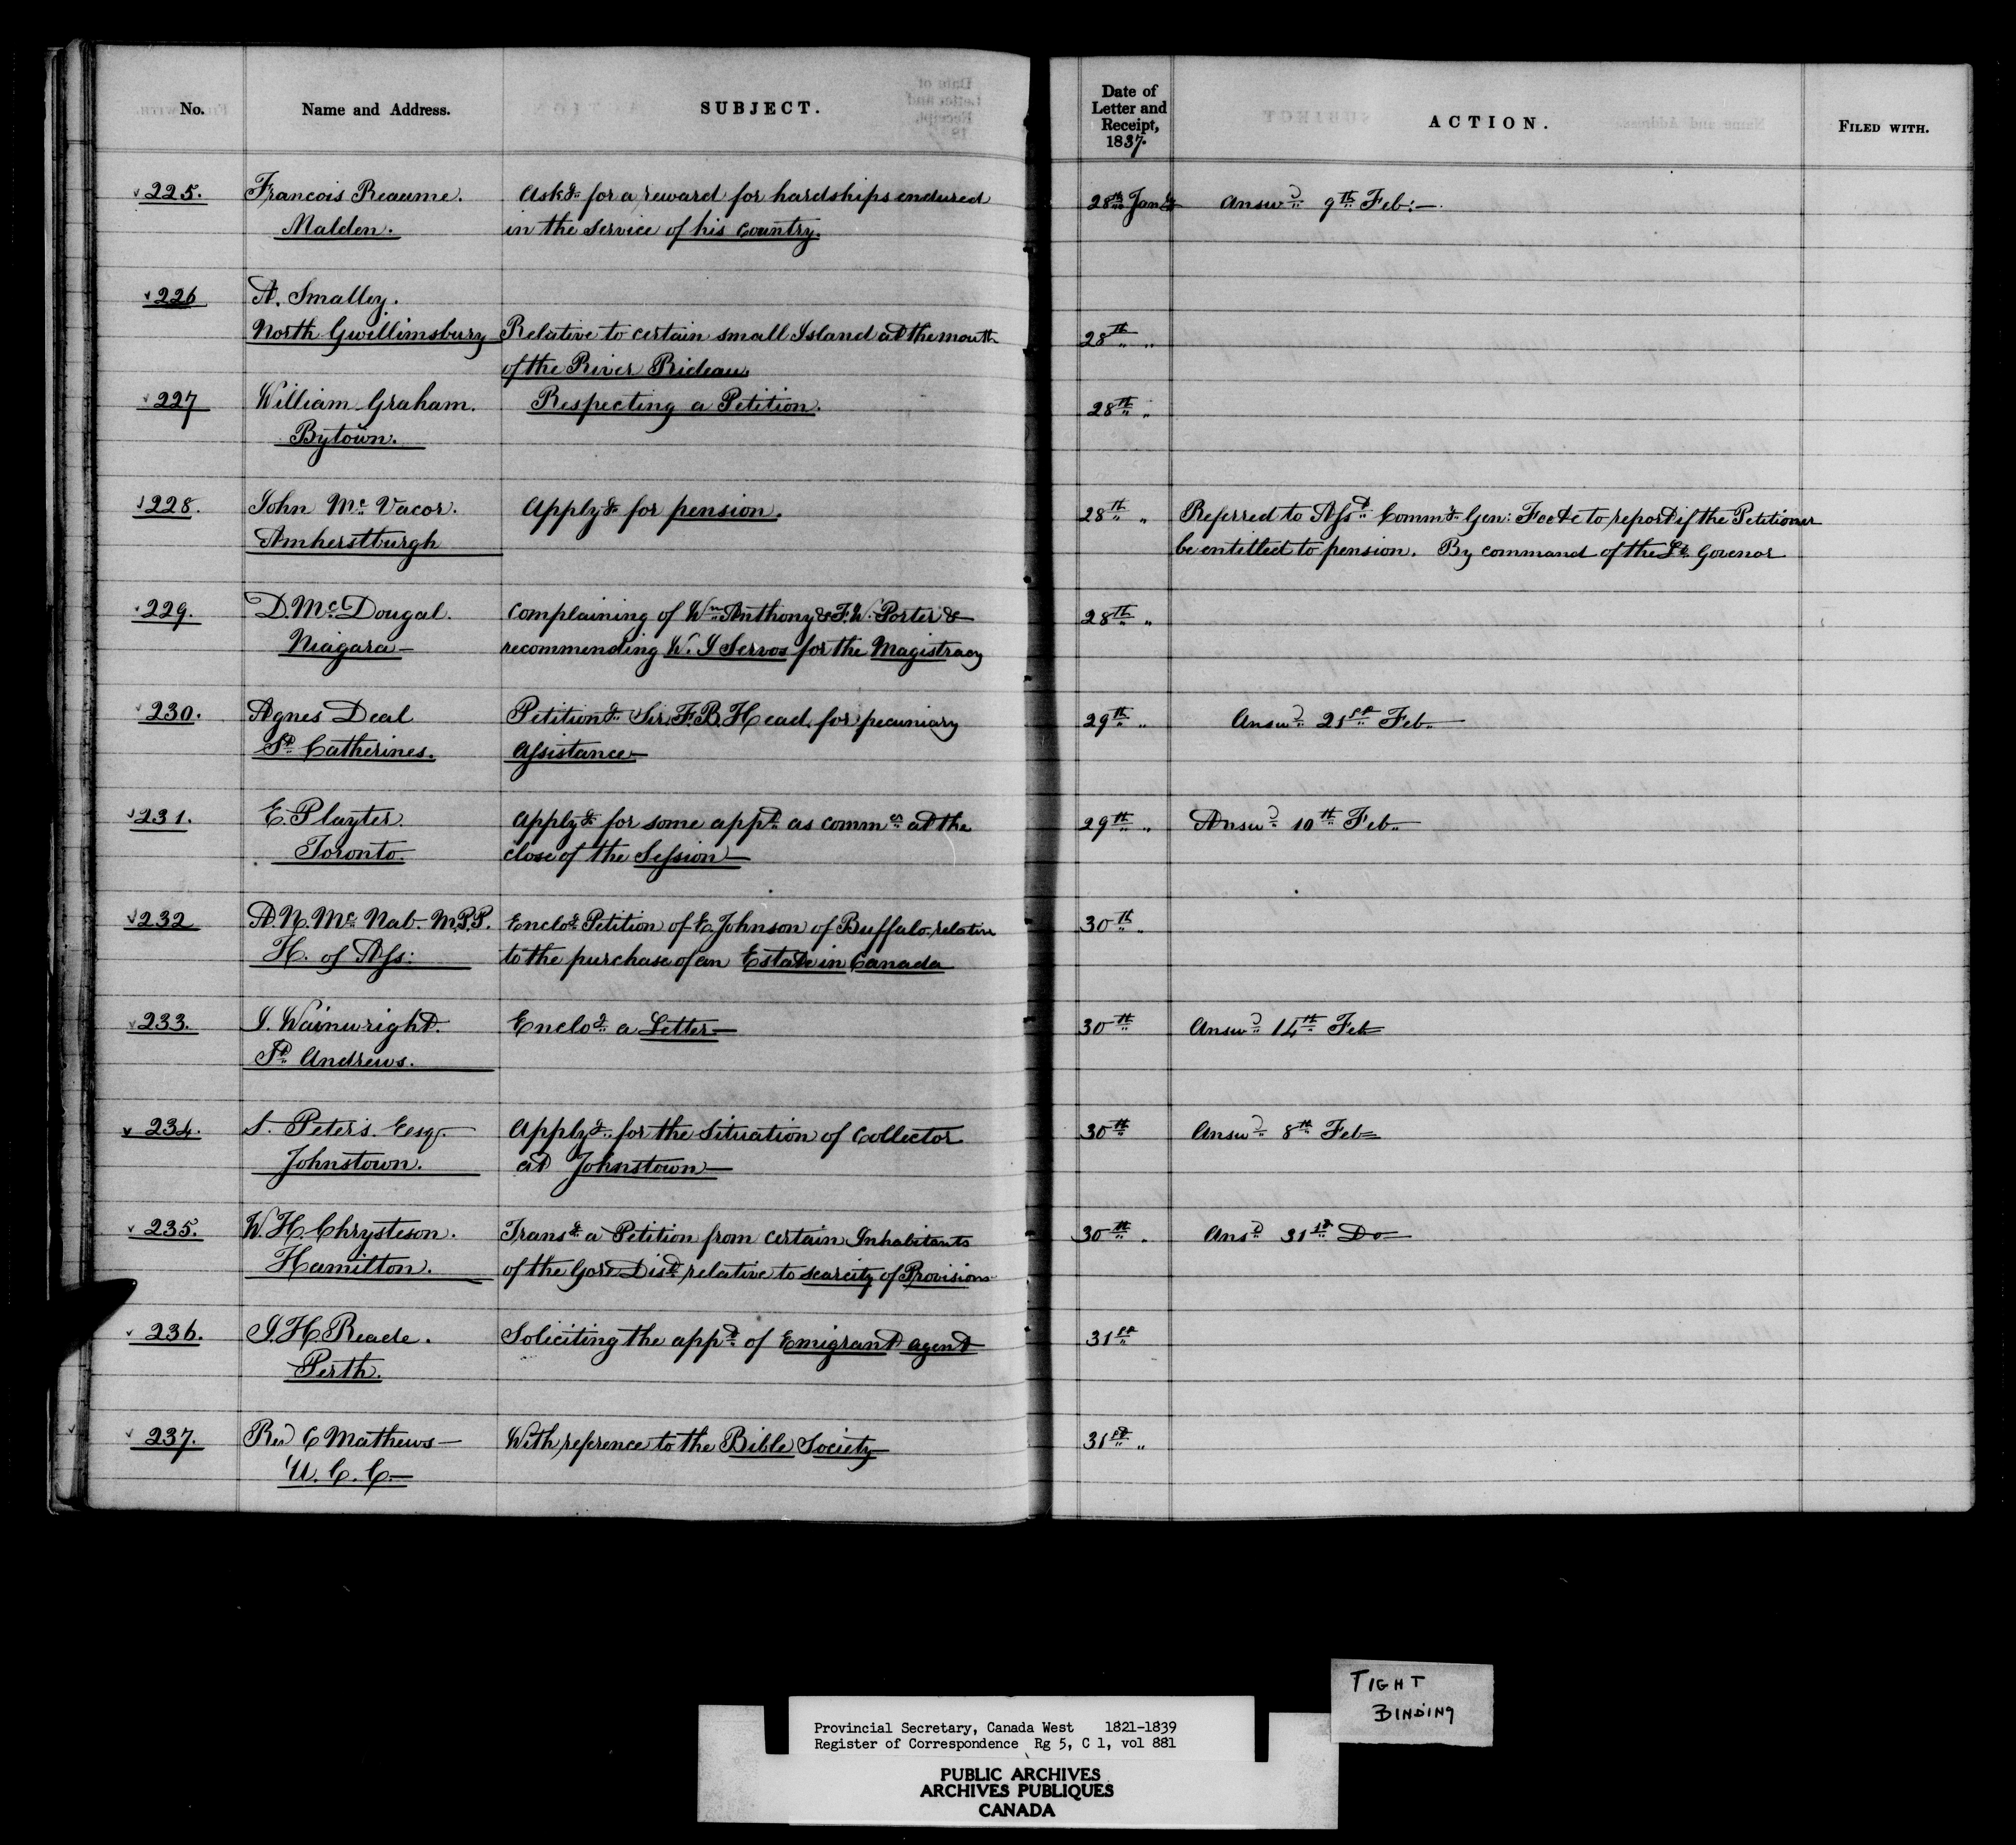 No. Name and Address. SUBJECT. Date of Letter and Receipt, 1837. ACTION. FILED WITH.
225. Francois Reaume. Ask.g for a reward for hardships endured 28th Jany Answd 9th Feb:—
Malden. in the Service of his Country.
226 A. Smalley.
North Gwillimsbury Relative to certain small Island at the mouth 28th " "
of the River Rideau.
227 William Graham. Respecting a Petition. 28th "
Bytown.
228. John Mc Vacor. Apply.g for pension. 28th " Referred to Asst Commy Gen: Foote to report if the Petitioner
Amherstburgh be entitled to pension. By command of the Lt. Govenor
229. D. McDougal. Complaining of Wm Anthony & F. W. Porter & 28th "
Niagara— recommending W. J Servos for the Magistracy
230. Agnes Deal Petition.g Sir F. B. Head. for pecuniary 29th " Answd 21st Feb.
St Catherines. Assistance—
231. E. Playter. Apply.g for some appt as commr at the 29th " Answd 10th Feb.
Toronto. close of the Session—
232 A. N. Mc Nab. M.P.P. Enclo.g Petition of E. Johnson of Buffalo relative 30th "
H. of Ass: to the purchase of an Estate in Canada
233. J. Wainwright. Enclo.g a Letter— 30th Answd 14th Feb
St Andrews.
234. S. Peters. Esqr. Apply.g for the Situation of Collector 30th Answd 8th Feb
Johnstown. at Johnstown—
235. W. H. Chrysteson. Trans.g a Petition from certain Inhabitants 30th " Ansd 31st Do—
Hamilton. of the Gore Dist relative to scarcity of Provisions
236. J. H. Reade. Soliciting the appt of Emigrant agent 31st
Perth.
237. Revd C Mathews— With refrence to the Bible Society 31st "
U. C. C.—
TIGHT
BINDING
Provincial Secretary, Canada West 1821-1839
Register of Correspondence Rg 5, C 1, vol 881
PUBLIC ARCHIVES
ARCHIVES PUBLIQUES
CANADA